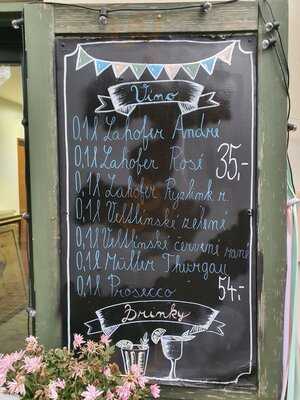 Víno
0,1l Lahofer André
0,1l Lahofer Rosé 35,-
0,1l Lahofer Ryzlink r.
0,1l Veltlínské zelené
0,1l Veltlínské červené rané
0,1l Müller Thurgau
0,1l Prosecco 54,-
Drinky